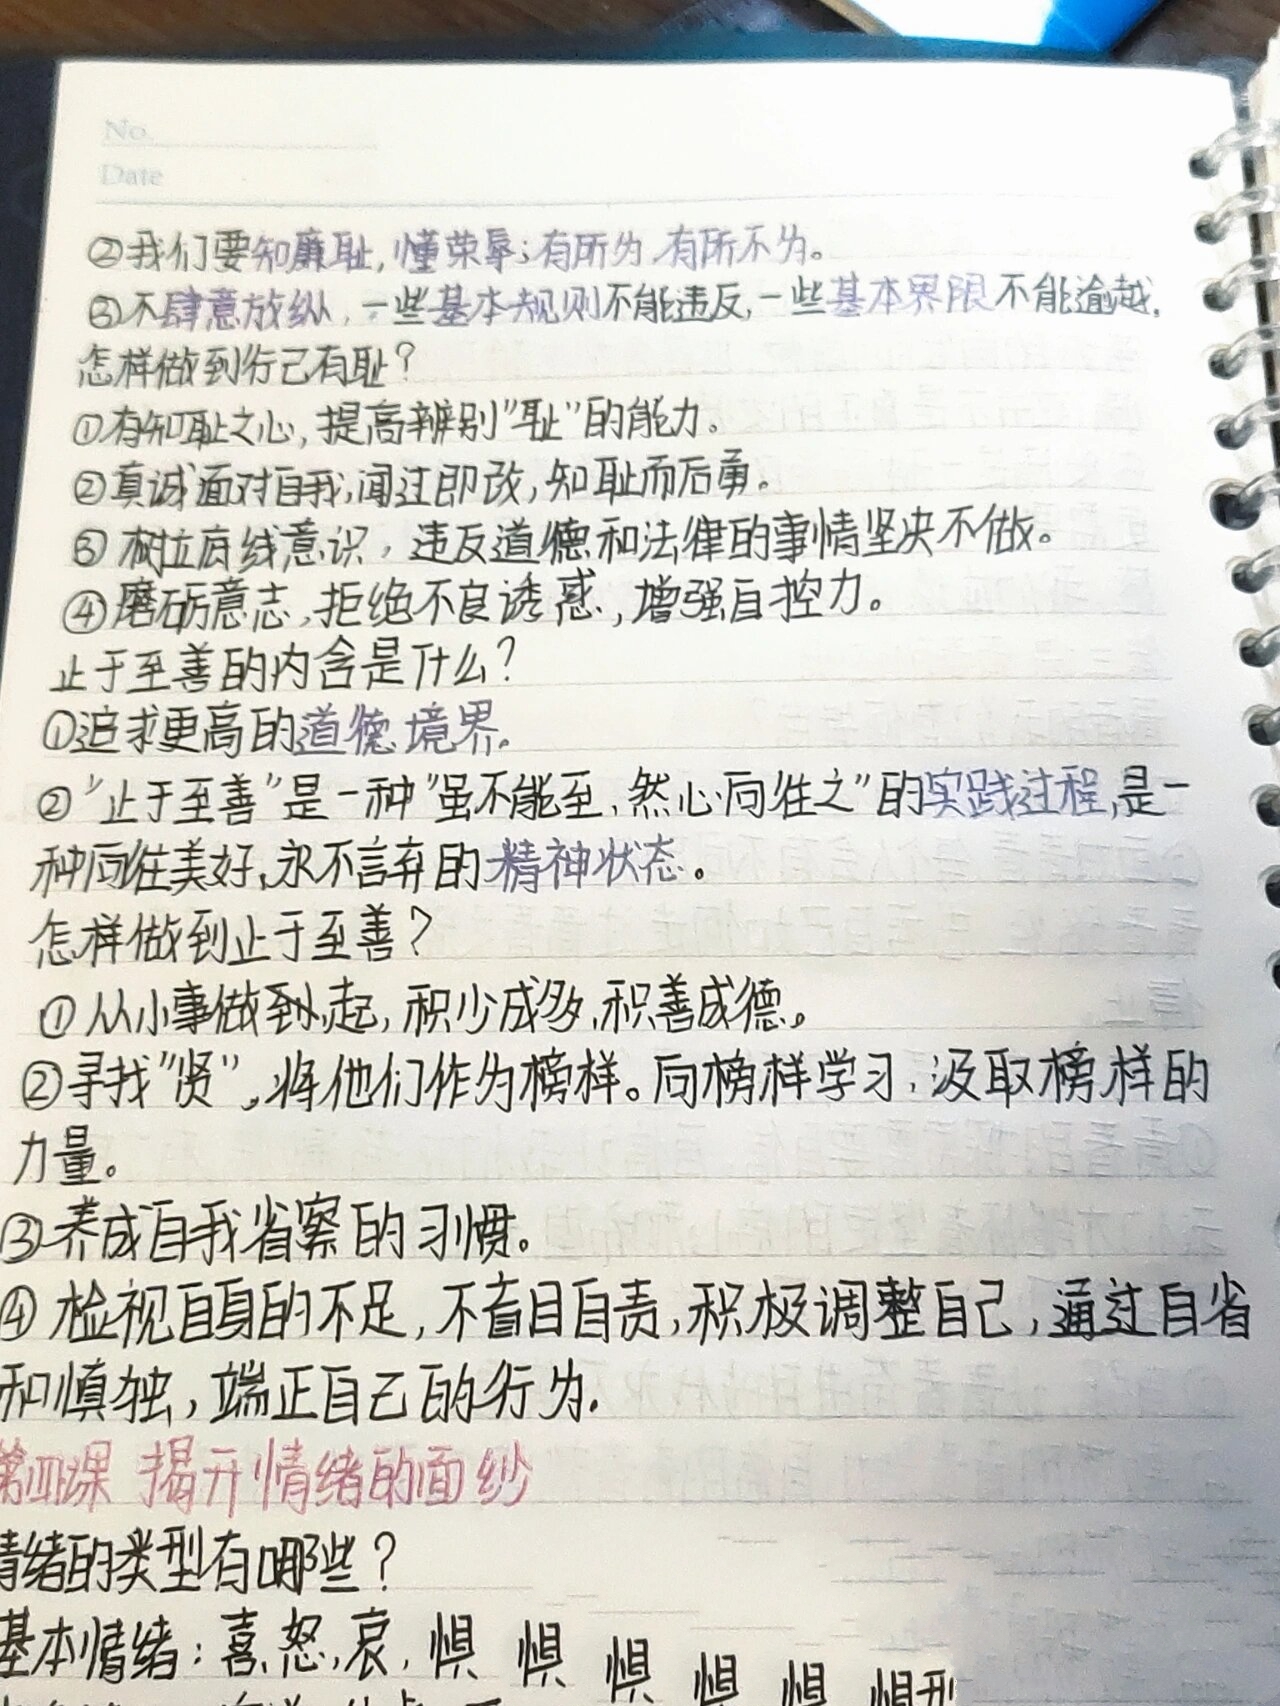 No.
Date
②我们要知廉耻,懂荣辱;有所为,有所不为。
③不肆意放纵,一些基本规则不能违反,一些基本界限不能逾越。
怎样做到行己有耻?
①有知耻之心,提高辨别"耻"的能力。
②真诚面对自我,闻过即改,知耻而后勇。
③树立底线意识,违反道德和法律的事情坚决不做。
④磨砺意志,拒绝不良诱惑,增强自控力。
止于至善的内含是什么?
①追求更高的道德境界。
②"止于至善"是一种"虽不能至,然心向往之"的实践过程,是一
种向往美好,永不言弃的精神状态。
怎样做到止于至善?
①从小事做到起,积少成多,积善成德。
②寻找"贤",将他们作为榜样。向榜样学习,汲取榜样的
力量。
③养成自我省察的习惯。
④检视自身的不足,不盲目自责,积极调整自己,通过自省
和慎独,端正自己的行为.
第四课 揭开情绪的面纱
情绪的类型有哪些?
基本情绪:喜,怒,哀,惧 惧 惧 惧 惧 惧